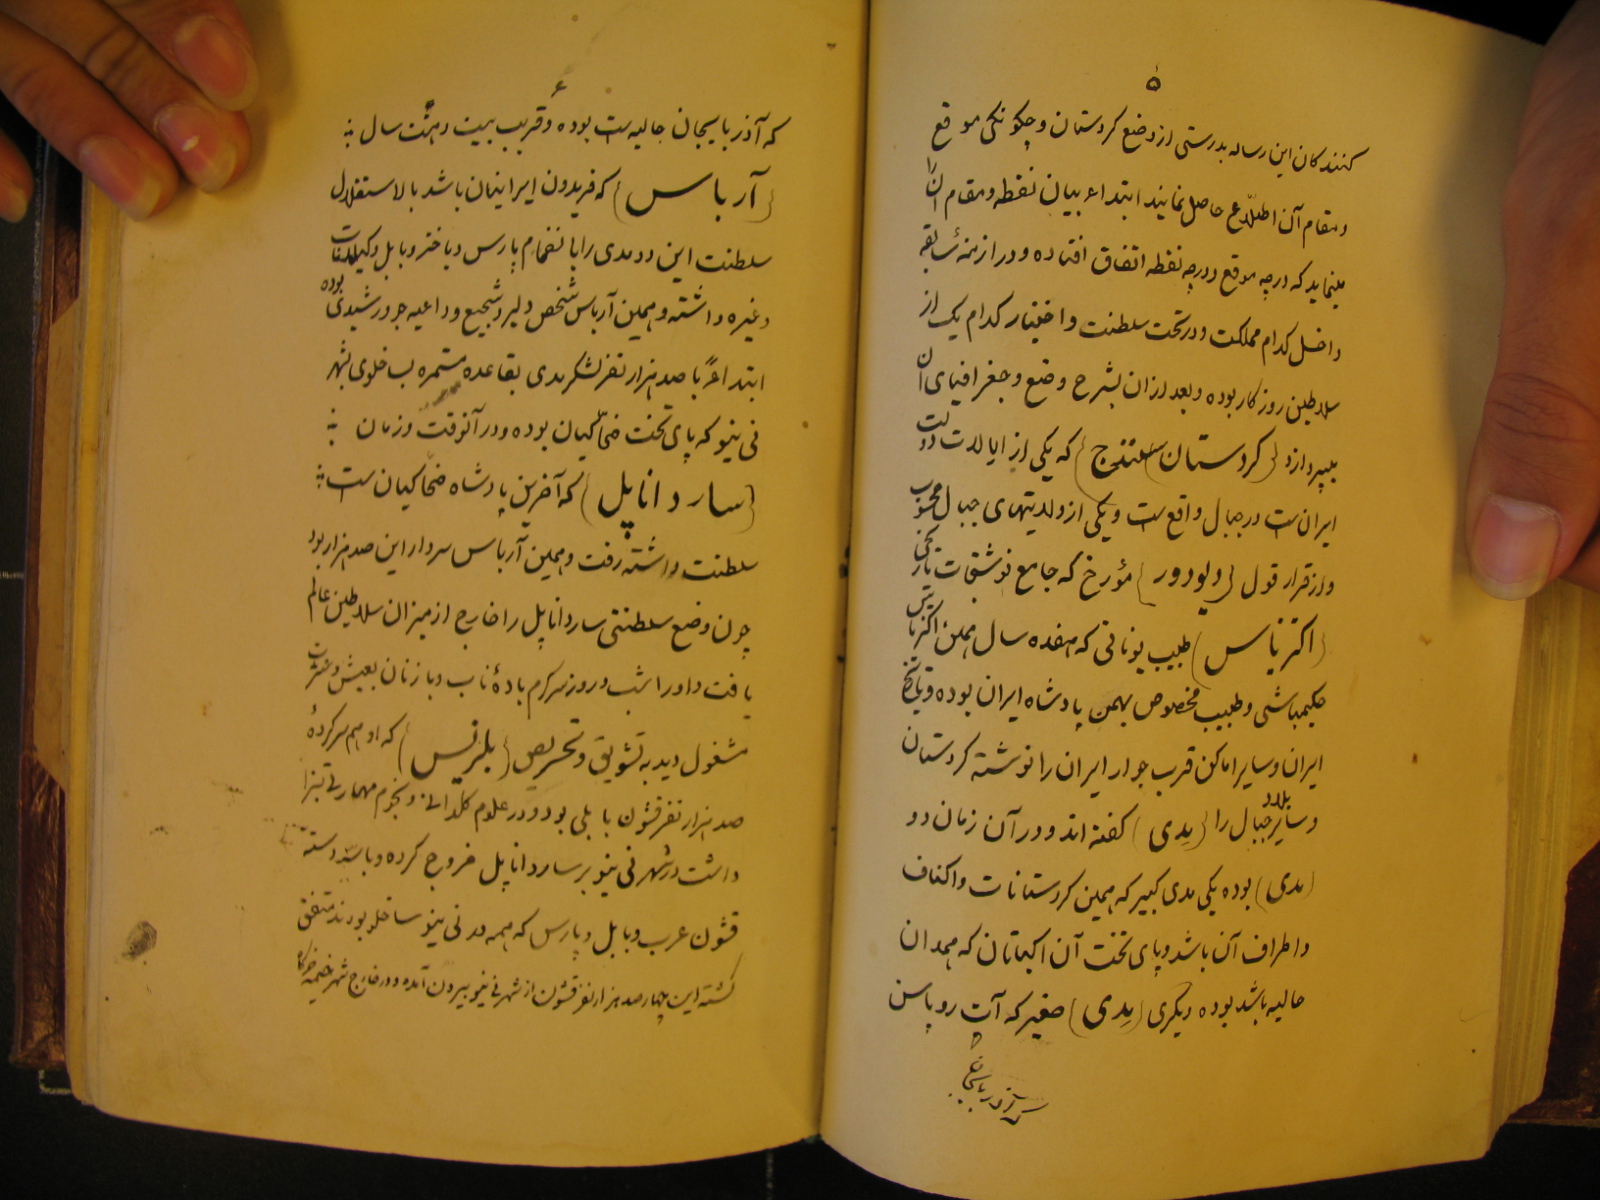 ۵
کنندکان این رساله بدرستی از وضع کردستان و چکونکی موقع
و مقام آن اطلاع حاصل نمایند ابتداء به بیان نقطه و مقام آن را
مینماید که در چه موقع و در چه نقطه اتفاق افتاده و در ازمنهٔ سابقه
داخل کدام مملکت و در تحت سلطنت و اختیار کدام یک از
سلاطین روزکار بوده و بعد از ان بشرح وضع و جغرافیای آن
بپردازد (کردستان سنندج) که یکی از ایالات دولت
ایران ست در جبال واقع ست و یکی از ولایتهای جبال محسوب
و از قرار قول (دیودور) مؤرخ که جامع نوشتجات تاریخی
(اکتزیاس) طبیب یونانی که هفده سال همین اکتزیاس
حکیمباشی و طبیب مخصوص بهمن پادشاه ایران بوده و تاریخ
ایران و سایر اماکن قرب جوار ایران را نوشته کردستان
و سایر بلاد جبال را (مِدی) کفته اند و در آن زمان دو
(مدی) بوده یکی مدی کبیر که همین کردستانات و اکناف
و اطراف آن باشد و پای تخت آن اکباتان که همدان
حالیه باشد بوده دیکری (مِدی) صغیر که آت روپاس
که آذربایجان
۶
که آذربایجان حالیه ست بوده و قریب بیست و هشت سال
(آرباس) که فریدون ایرانیان باشد بالاستقلال
سلطنت این دو مدی را با نضمام پارس و باختر و بابل و
و غیره داشته و همین آرباس شخص دلیر و شجیع و داعیه جو و رشیدی بوده
ابتداءً با صد هزار نفر لشکر مدی بقاعده مستمره بساخلوی شهر
نی نیو که پای تخت ضحاکیان بوده و در آنوقت و زمان
(ساردانا پل) که آخرین پادشاه ضحاکیان ست
سلطنت داشته رفت و همین آرباس سردار این صد هزار بود
چون وضع سلطنتی ساردانا پل را خارج از میزان سلاطین عالم
یافت و او را شب و روز سرکرم بادهٔ ناب و با زنان بعیش و عشرت
مشغول دید به تشویق و تحریص (بلزیس) که او هم سرکردهٔ
صد هزار نفر قشون بابلی بود و در علوم کلدانی و نجوم مهارتی بسزا
داشت در شهر نی نیو بر ساردانا پل خروج کرده و با سه دسته
قشون عرب و بابل و پارس که همه در نی نیو ساخلو بودند متفق
کشته این چهار صد هزار نفر قشون از شهر نی نیو بیرون آمده و در خارج شهر خیمه و خرکاه